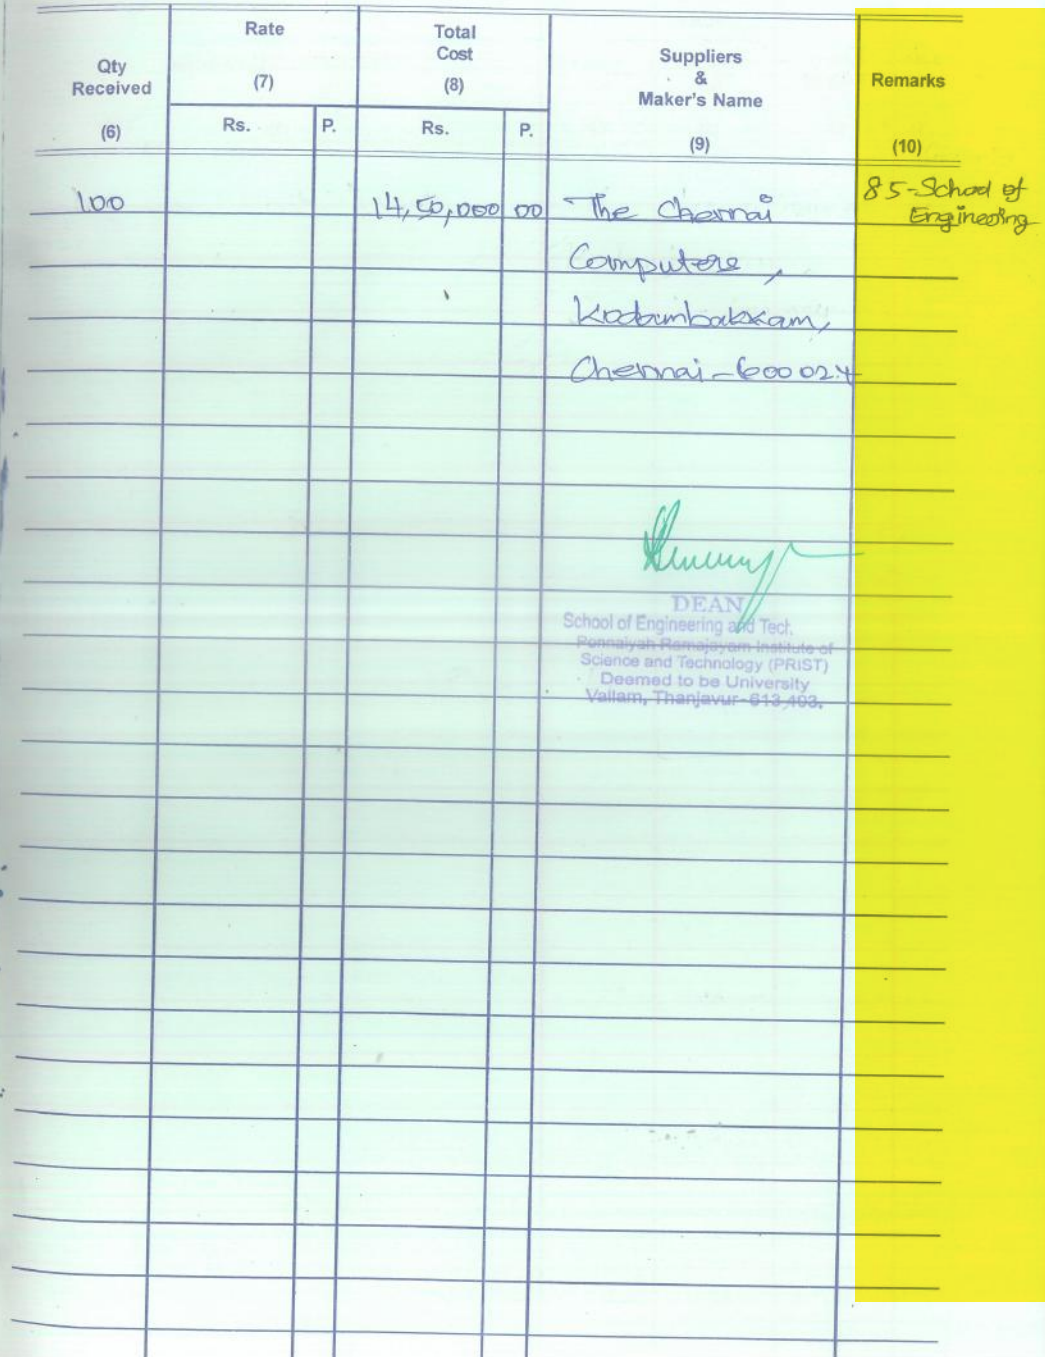 Qty
Received
(6)
Rate
(7)
Rs.
P.
Total
Cost
(8)
Rs.
P.
Suppliers
&
Maker's Name
(9)
Remarks
(10)
100
14,50,000 00
The Chennai
Computers,
Kodambakkam,
Chennai-600024
85-School of
Engineering
DEAN
School of Engineering and Tech.
Ponnaiyah Ramajayam Institute of
Science and Technology (PRIST)
Deemed to be University
Vallam, Thanjavur-613 403.